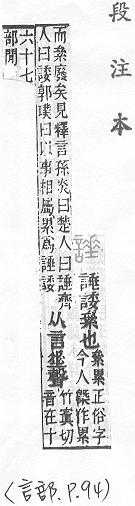 段注本
諈諉纍也
纍累正俗字
今人槩作累
而纍廢矣見釋言孫炎曰楚人曰諈齊
人曰諉郭璞曰以事相屬累爲諈諉
从言𡍮聲
竹寘切
音在十
六十七
部閒
(言部.P.94)